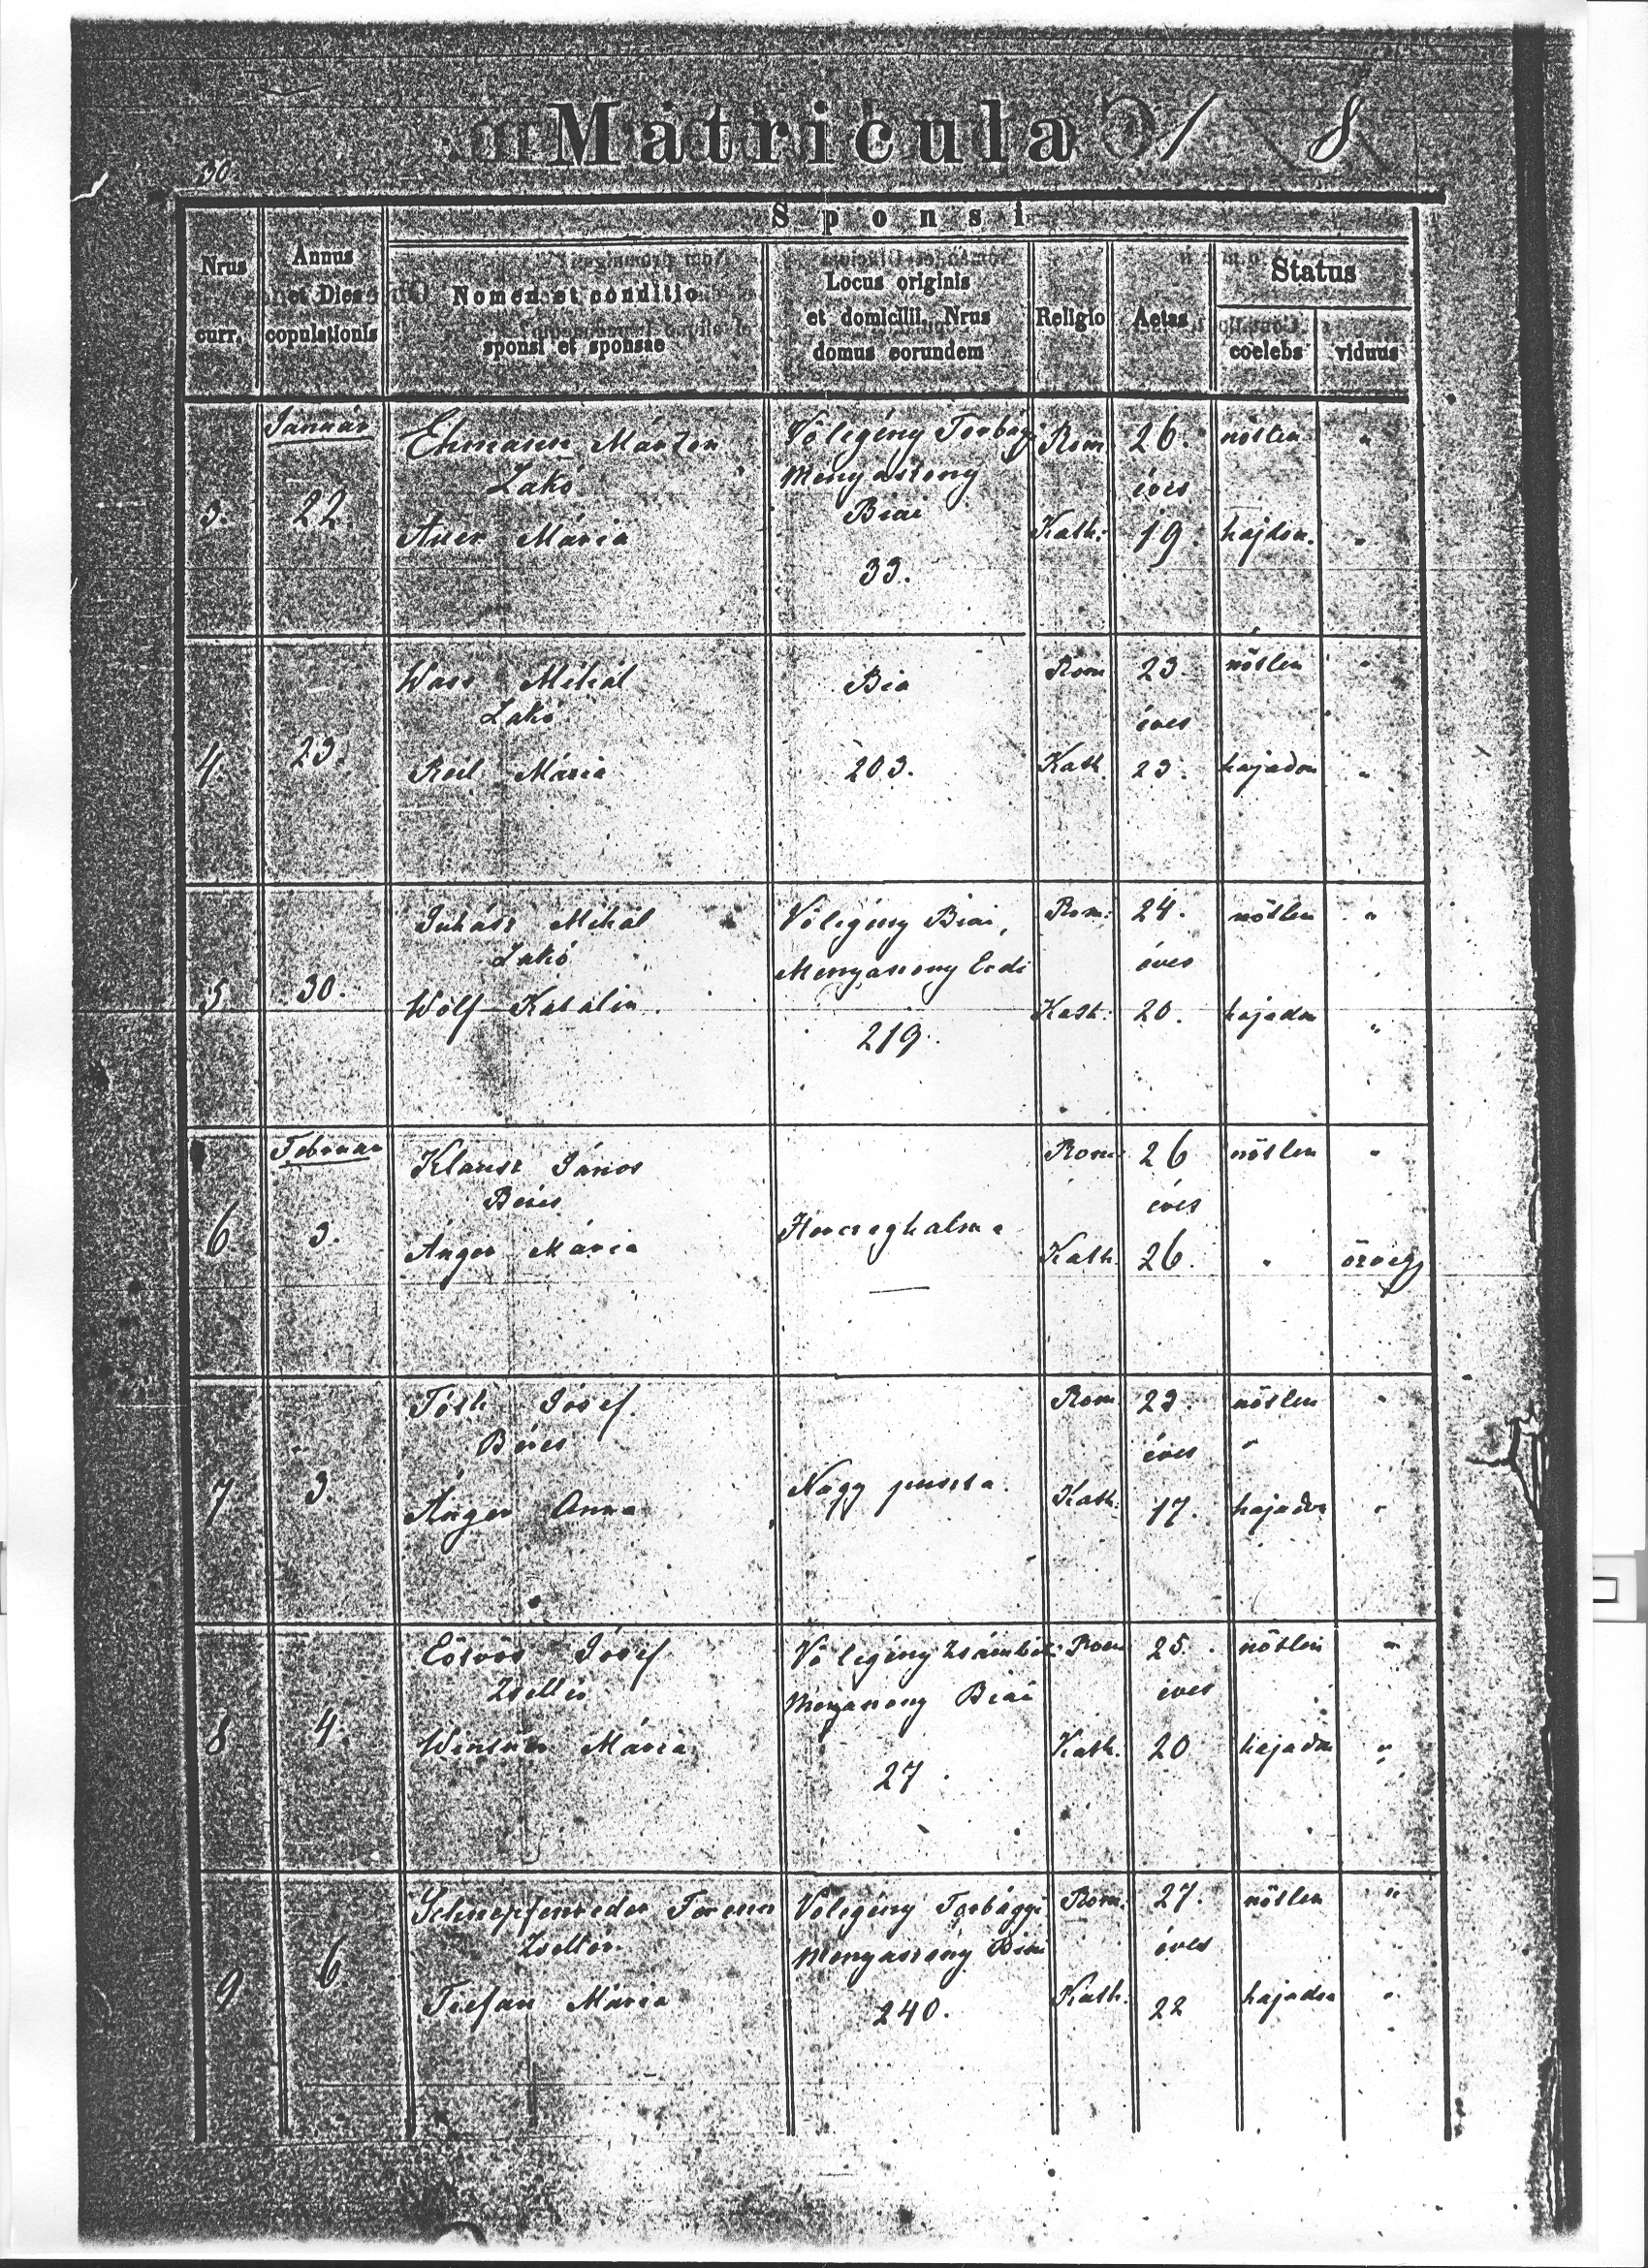 Matricula
30
8
Sponsi
Nrus curr.
Annus et Dies copulationis
Nomen et conditio sponsi et sponsae
Locus originis et domicilii, Nrus domus eorundem
Religio
Aetas
Status
coelebs
viduus
Január
Ehmann Márton
Vőlegény Torbágyi
Rom
26.
nőtlen
"
Lakó
Menyasszony
éves
3.
22.
Biai
Auer Mária
Kath:
19.
hajdon.
"
33.
Wass Mihál
Bia
Rom
23.
nőtlen
"
Lakó
éves
4.
23.
Reil Mária
203.
Kath
23.
hajadon
"
Juhász Mihál
Vőlegény Biai,
Rom:
24.
nőtlen
"
Lakó
Menyasszony Érdi
éves
5.
30.
Wolf Katalin.
Kath:
20.
hajadon
"
219.
Február
Klausz János
Rom
26
nőtlen
"
Béres
éves
6
3.
Ánger Mária
Herczeghalma
Kath.
26.
"
özvegy
Tóth József.
Rom
23.
nőtlen
"
Béres
éves
"
7
3.
Ánger Anna
Nagy puszta.
Kath:
17.
hajadon
"
Eötvös József
Vőlegény Zsámbéki
Rom
25.
nőtlen
"
Zsellér
Menyasszony Biai
éves
8
4.
Mária
Kath.
20
hajadon
"
27.
Ferencz
Vőlegény Torbágyi
Rom:
27.
nőtlen
"
Zsellér.
Menyasszony Biai
éves
9
6
Trefan Mária
240.
Kath.
22
hajadon
"